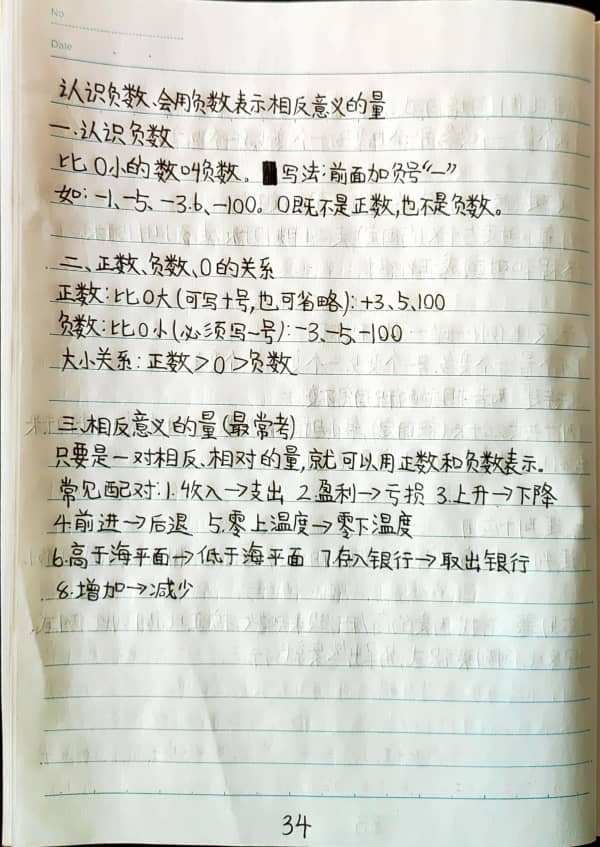 No
Date
认识负数、会用负数表示相反意义的量
一.认识负数
比0小的数叫负数。写法:前面加负号“-”
如:-1、-5、-3.6、-100。0既不是正数,也不是负数。
二、正数、负数、0的关系
正数:比0大(可写+号,也可省略):+3、5、100
负数:比0小(必须写-号):-3、-5、-100
大小关系:正数>0>负数
三.相反意义的量(最常考)
只要是一对相反、相对的量,就可以用正数和负数表示。
常见配对:1.收入→支出 2.盈利→亏损 3.上升→下降
4.前进→后退 5.零上温度→零下温度
6.高于海平面→低于海平面 7.存入银行→取出银行
8.增加→减少
34